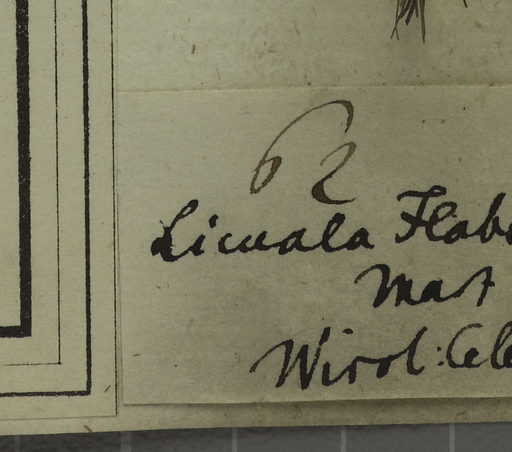 62
Licuala Flabe
Mat
Wirol: Cele